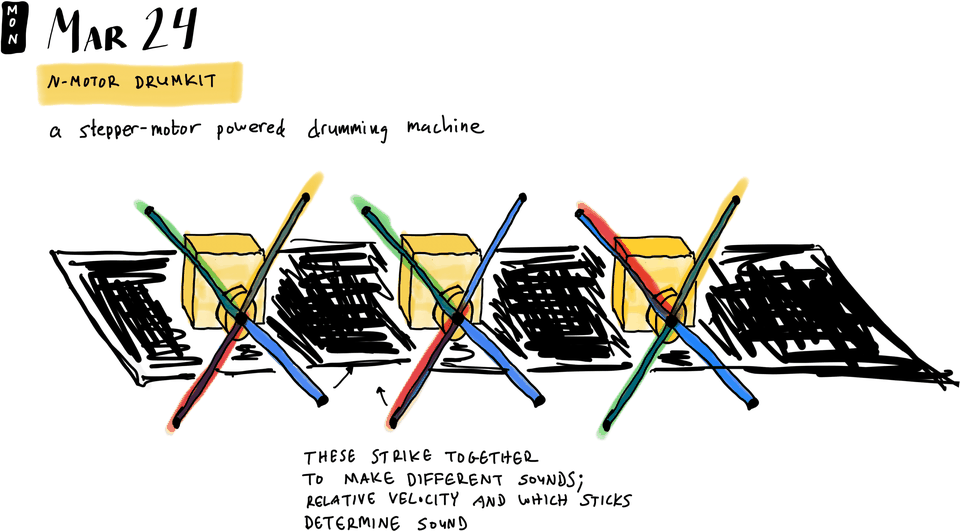 MON
MAR 24
N-MOTOR DRUMKIT
a stepper-motor powered drumming machine
THESE STRIKE TOGETHER
TO MAKE DIFFERENT SOUNDS;
RELATIVE VELOCITY AND WHICH STICKS
DETERMINE SOUND